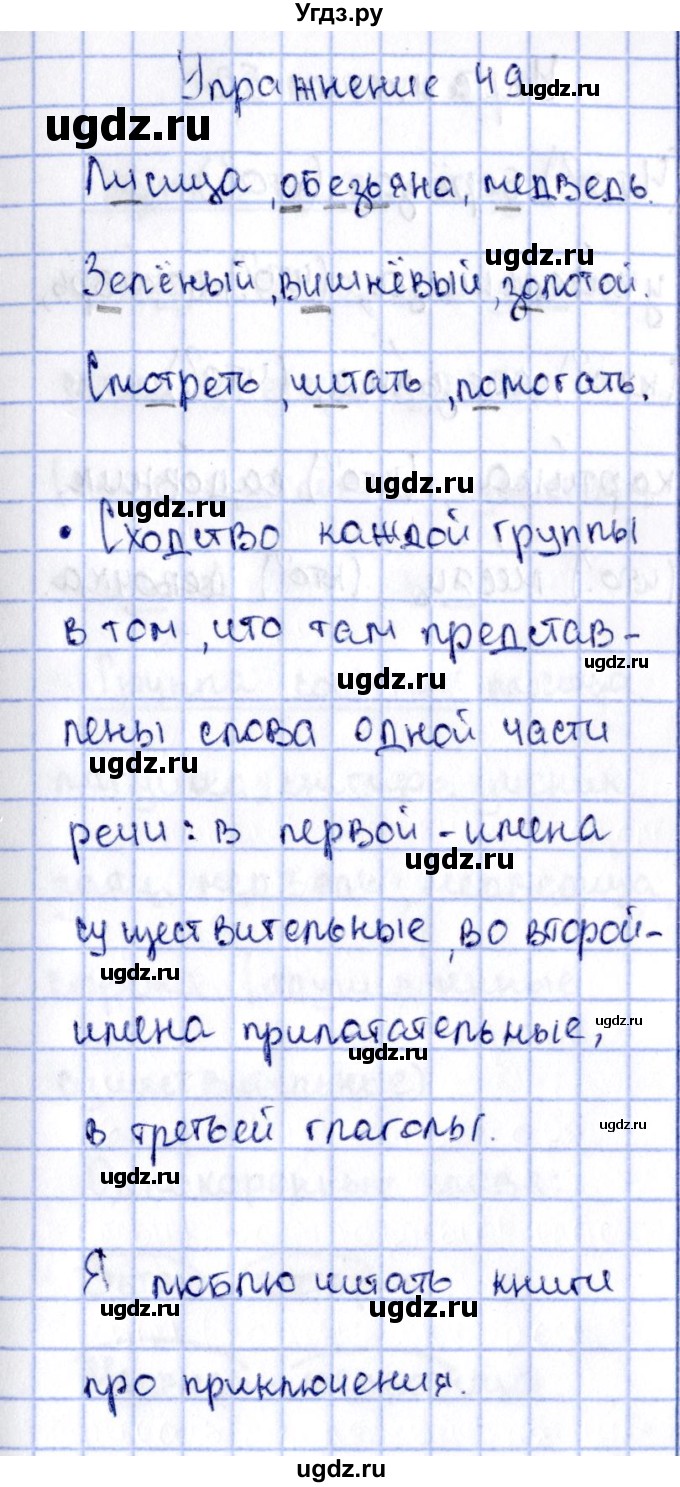 Угдз.ру
Упражнение 49
ugdz.ru
ugdz.ru
Лисица, обезьяна, медведь.
ugdz.ru
Зелёный, вишнёвый, золотой.
Смотреть, читать, помогать.
ugdz.ru
ugdz.ru
• Сходство каждой группы
в том, что там представ-
ugdz.ru
ugdz.ru
лены слова одной части
ugdz.ru
речи: в первой - имена
ugdz.ru
существительные, во второй -
ugdz.ru
имена прилагательные,
ugdz.ru
ugdz.ru
в третьей глаголы.
ugdz.ru
ugdz.ru
Я люблю читать книги
ugdz.ru
ugdz.ru
про приключения.
ugdz.ru